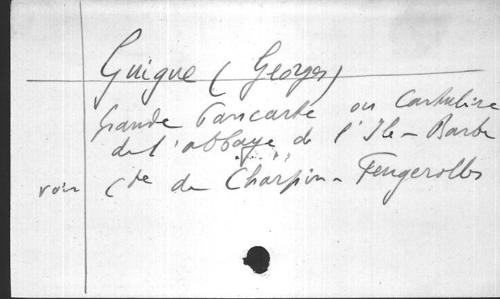 Guigue (Georges)
Grande Pancarte ou Cartulaire
de l'abbaye de l'Ile-Barbe
voir Cte de Charpin-Feugerolles